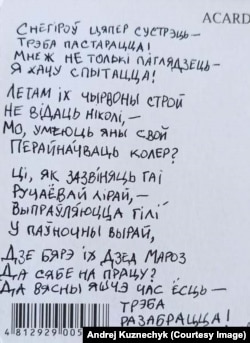 ACARD
Снегіроў цяпер сустрэць –
Трэба пастарацца!
Мнеж не толькі паглядзець –
Я хачу спытацца!
Летам іх чырвоны строй
Не відаць ніколі, –
Мо, умеюць яны свой
Перайначваць колер?
Ці, як зазвіняць гаі
Ручаёвай лірай, –
Выпраўляюцца гілі
У паўночны вырай,
Дзе бярэ іх Дзед Мароз
Да сябе на працу?
Да вясны яшчэ час ёсць –
Трэба
разабрацца!
4 812929 005
Andrej Kuznechyk (Courtesy Image)